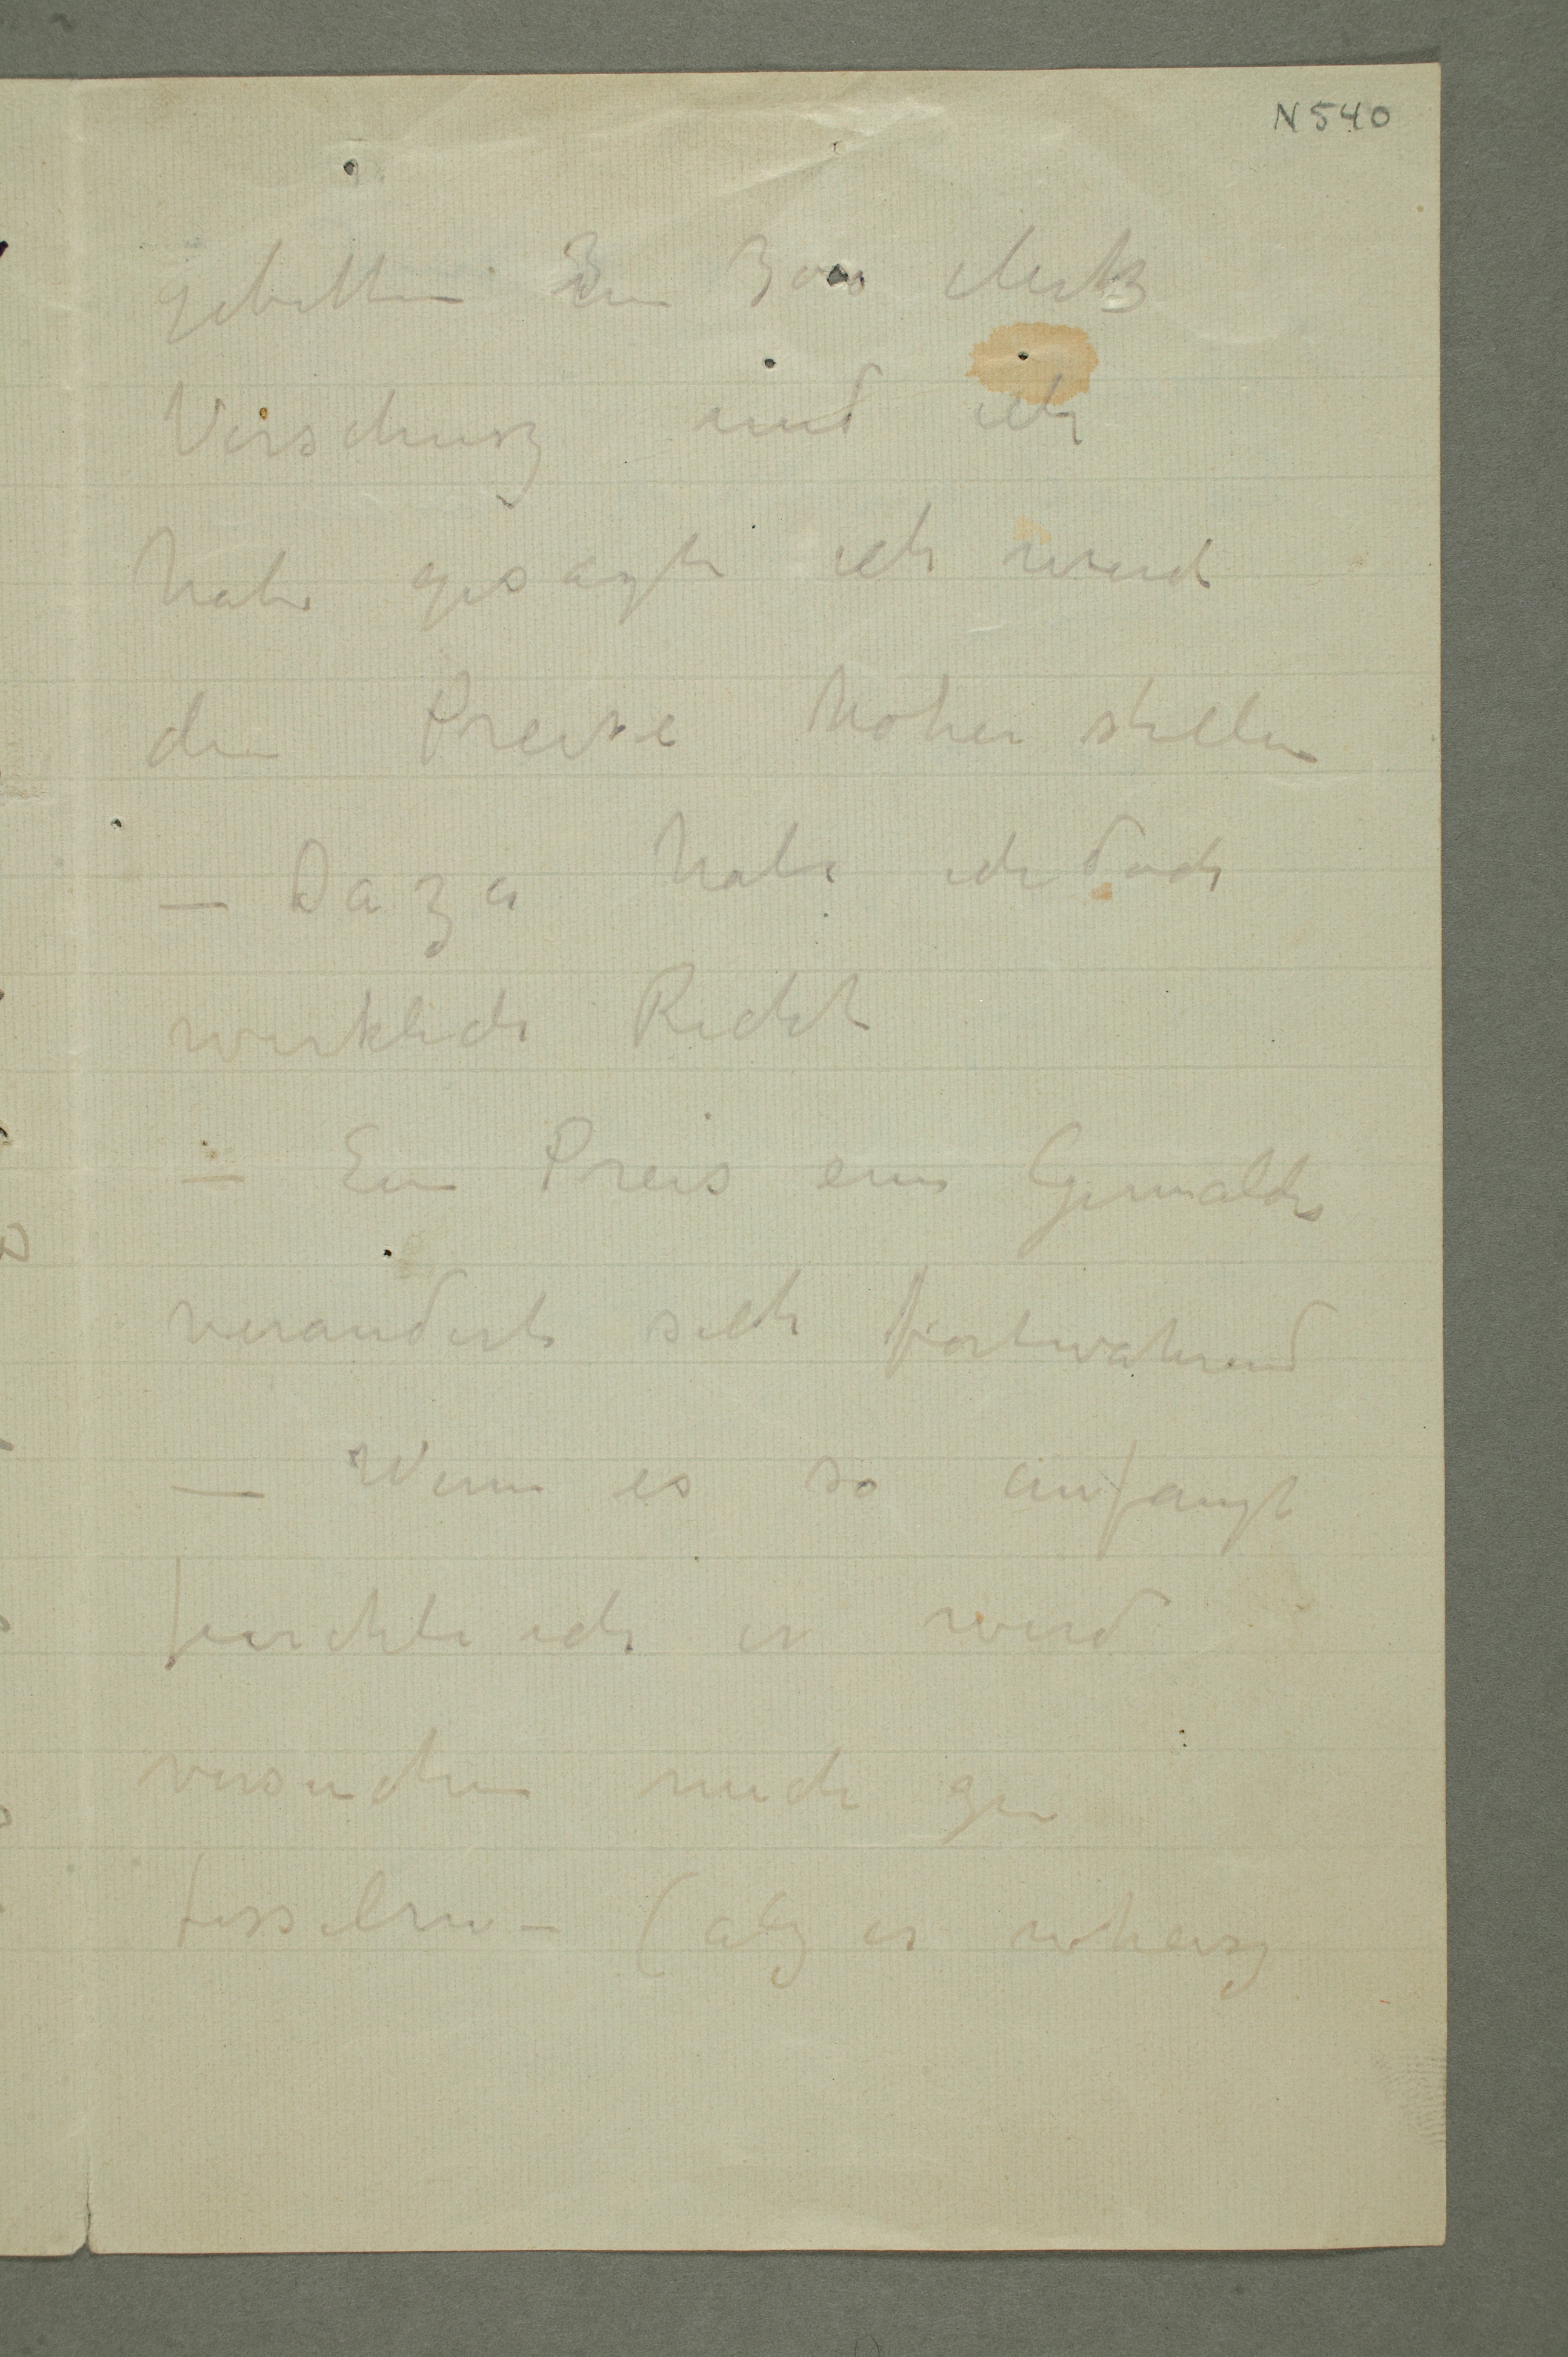 N 540
gebetten um 300 Mark
Vorschusz und ich
habe gesagt ich werde
den Preise hoher stellen
— Dazu habe ich doch
wirklich Recht
— Ein Preis eines Gemaldes
verandert sich fortwahrend
— Wenn es so anfangt
furchte ich er wird
versuchen mich zu
fesselnn — (als er